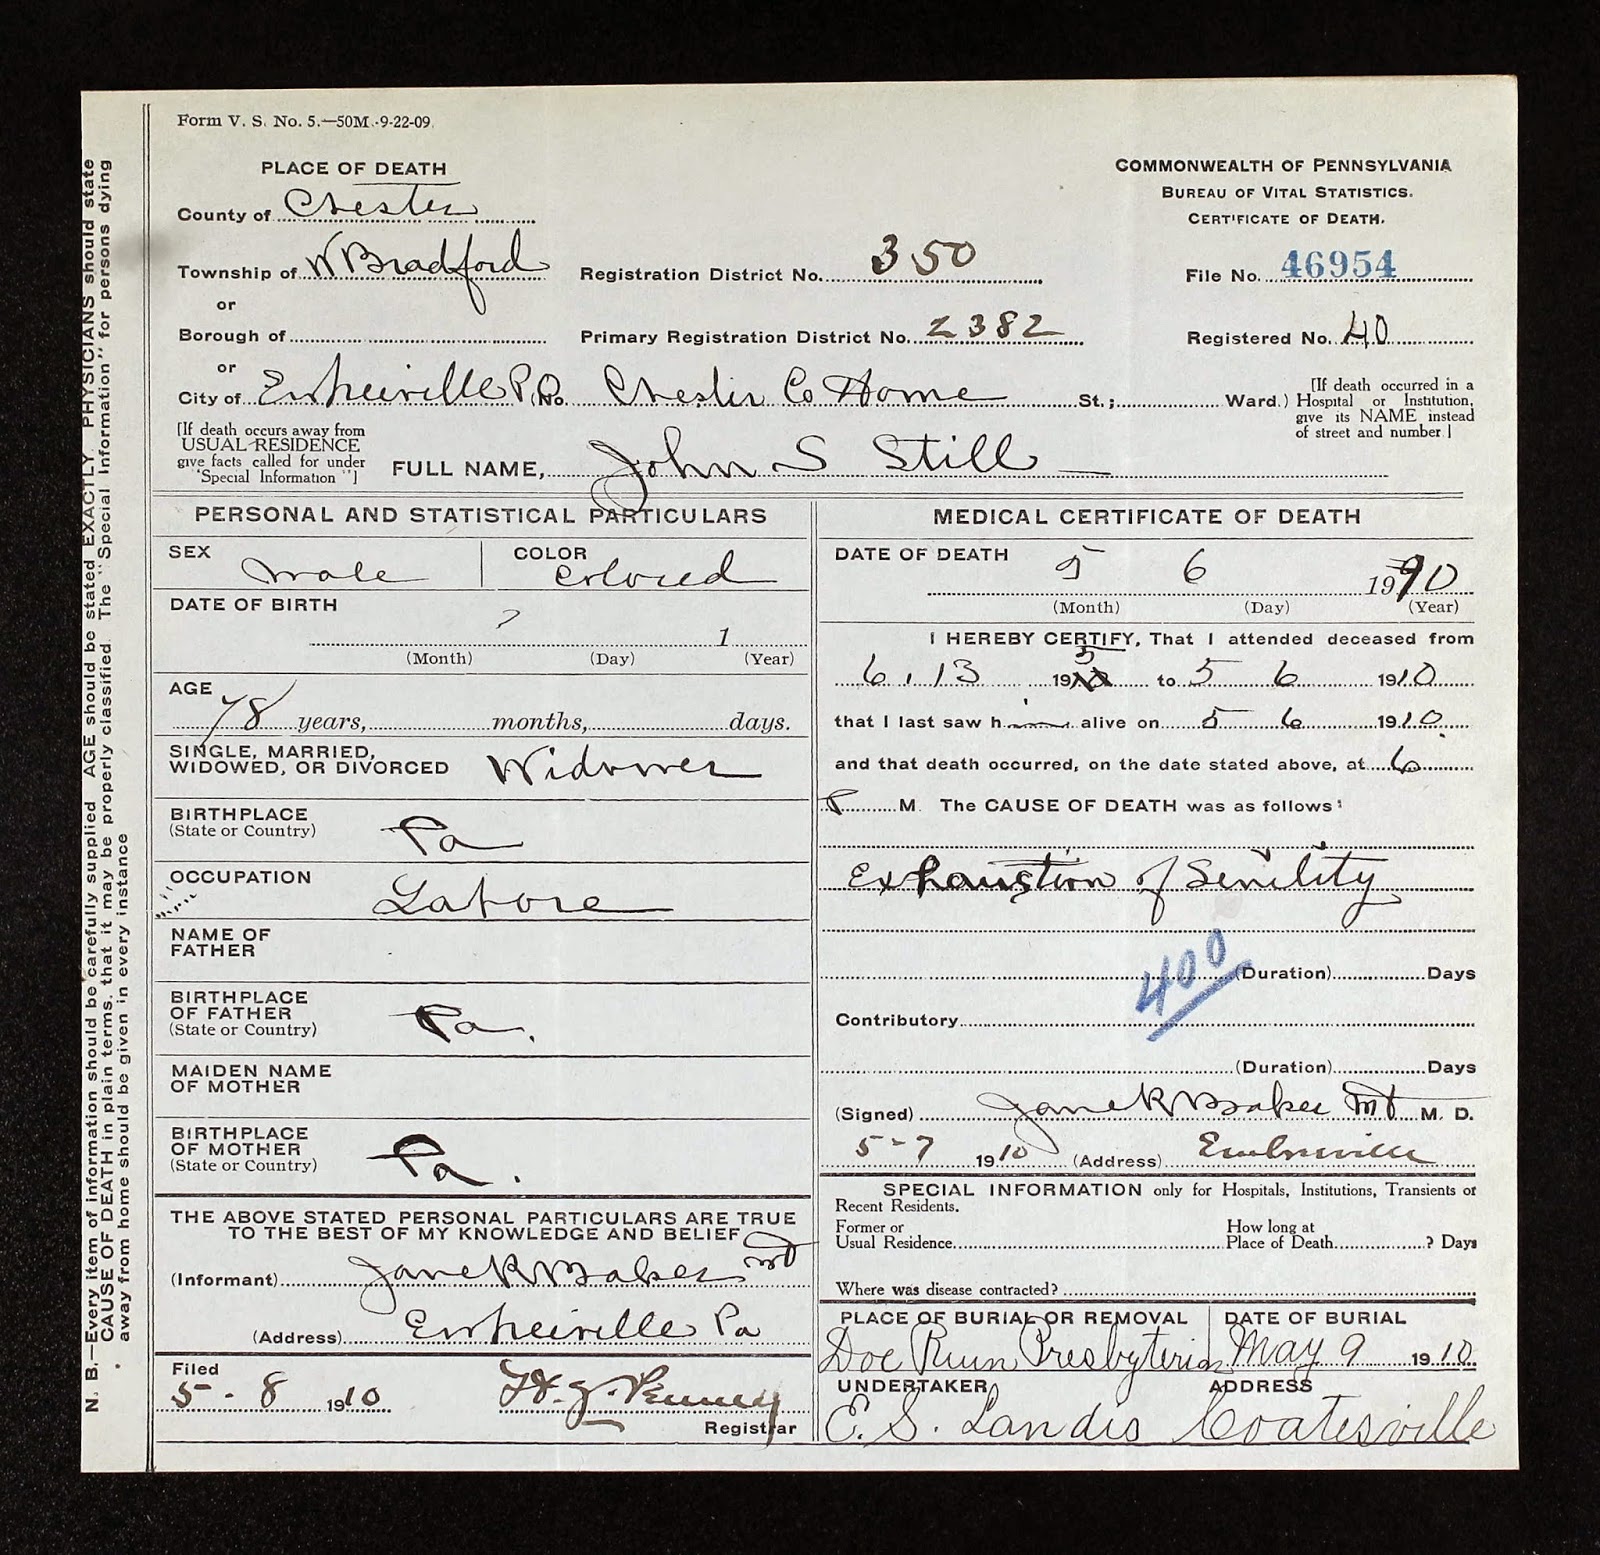 Form V. S. No. 5.—50M.-9-22-09.
PLACE OF DEATH
County of Chester
Township of W Bradford
or
Borough of
or
City of P.O. No. Chester Co Home St.; Ward.)
[If death occurs away from
USUAL RESIDENCE
give facts called for under
"Special Information"]
COMMONWEALTH OF PENNSYLVANIA
BUREAU OF VITAL STATISTICS.
CERTIFICATE OF DEATH.
Registration District No. 350
File No. 46954
Primary Registration District No. 2382
Registered No. 40
[If death occurred in a
Hospital or Institution,
give its NAME instead
of street and number.]
FULL NAME, John S Still
PERSONAL AND STATISTICAL PARTICULARS
SEX male
COLOR Colored
DATE OF BIRTH
? 1
(Month) (Day) (Year)
AGE
78 years, months, days.
SINGLE, MARRIED,
WIDOWED, OR DIVORCED Widower
BIRTHPLACE
(State or Country) Pa
OCCUPATION
Labore
NAME OF
FATHER
BIRTHPLACE
OF FATHER
(State or Country) Pa.
MAIDEN NAME
OF MOTHER
BIRTHPLACE
OF MOTHER
(State or Country) Pa.
THE ABOVE STATED PERSONAL PARTICULARS ARE TRUE
TO THE BEST OF MY KNOWLEDGE AND BELIEF
(Informant) Jane R Baker MD
(Address) Pa
Filed
5-8 1910
Registrar
MEDICAL CERTIFICATE OF DEATH
DATE OF DEATH 5 6 1910
(Month) (Day) (Year)
I HEREBY CERTIFY, That I attended deceased from
6. 13 190 5 to 5 6 1910
that I last saw him alive on 5 6 1910
and that death occurred, on the date stated above, at 6
P M. The CAUSE OF DEATH was as follows:
Exhaustion of Senility
400
(Duration) Days
Contributory
(Duration) Days
(Signed) Jane R Baker MD M. D.
5-7 1910 (Address) Embreeville
SPECIAL INFORMATION only for Hospitals, Institutions, Transients or
Recent Residents.
Former or
Usual Residence
How long at
Place of Death ? Days
Where was disease contracted?
PLACE OF BURIAL OR REMOVAL
Doe Run Presbyterian
DATE OF BURIAL
May 9 1910
UNDERTAKER
E. S. Landis
ADDRESS
Coatesville
N. B.—Every item of information should be carefully supplied. AGE should be stated EXACTLY. PHYSICIANS should state
CAUSE OF DEATH in plain terms, that it may be properly classified. The "Special Information" for persons dying
away from home should be given in every instance